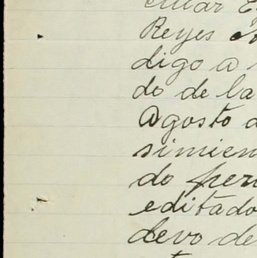 Reyes
digo a
do de la
Agosto
simien
do per
editado
devo de